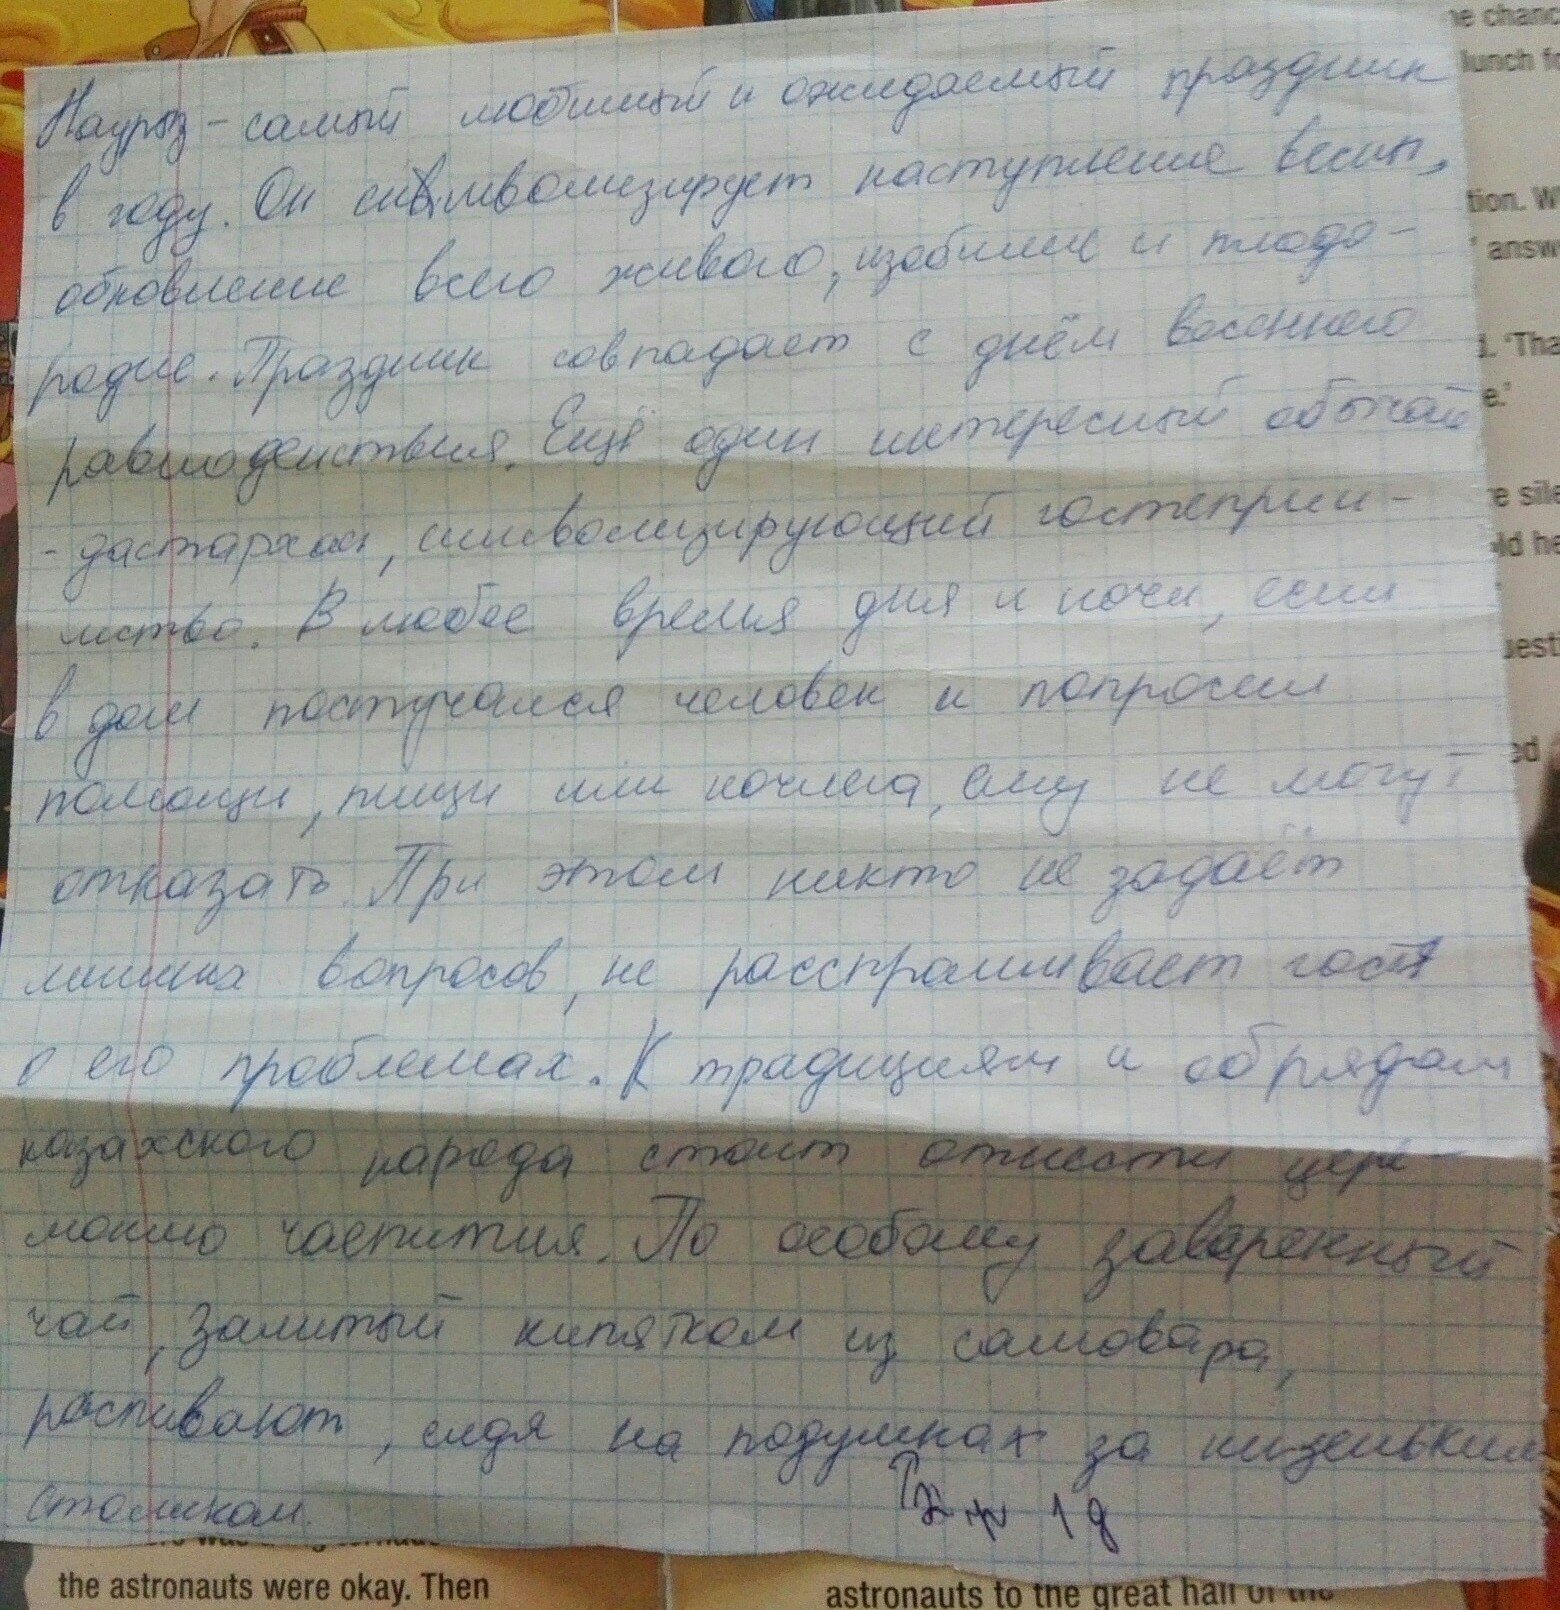 Наурыз - самый любимый и ожидаемый праздник
в году. Он символизирует наступление весны,
обновление всего живого, изобилие и плодо-
родие. Праздник совпадает с днём весеннего
равноденствия. Ещё один интересный обычай
- дастархан, символизирующий гостеприи-
мство. В любое время дня и ночи, если
в дом постучался человек и попросил
помощи, пищи или ночлега, ему не могут
отказать. При этом никто не задаёт
лишних вопросов, не расспрашивает гостя
о его проблемах. К традициям и обрядам
казахского народа стоит отнести цере-
монию чаепития. По особому заваренный
чай, залитый кипятком из самовара,
распивают, сидя на подушках за низеньким
столиком.
ne chanc
lunch fo
tion. W
' answ
d. 'Tha
e.'
re sile
ld he
uest
ed
the astronauts were okay. Then
astronauts to the great hall of the